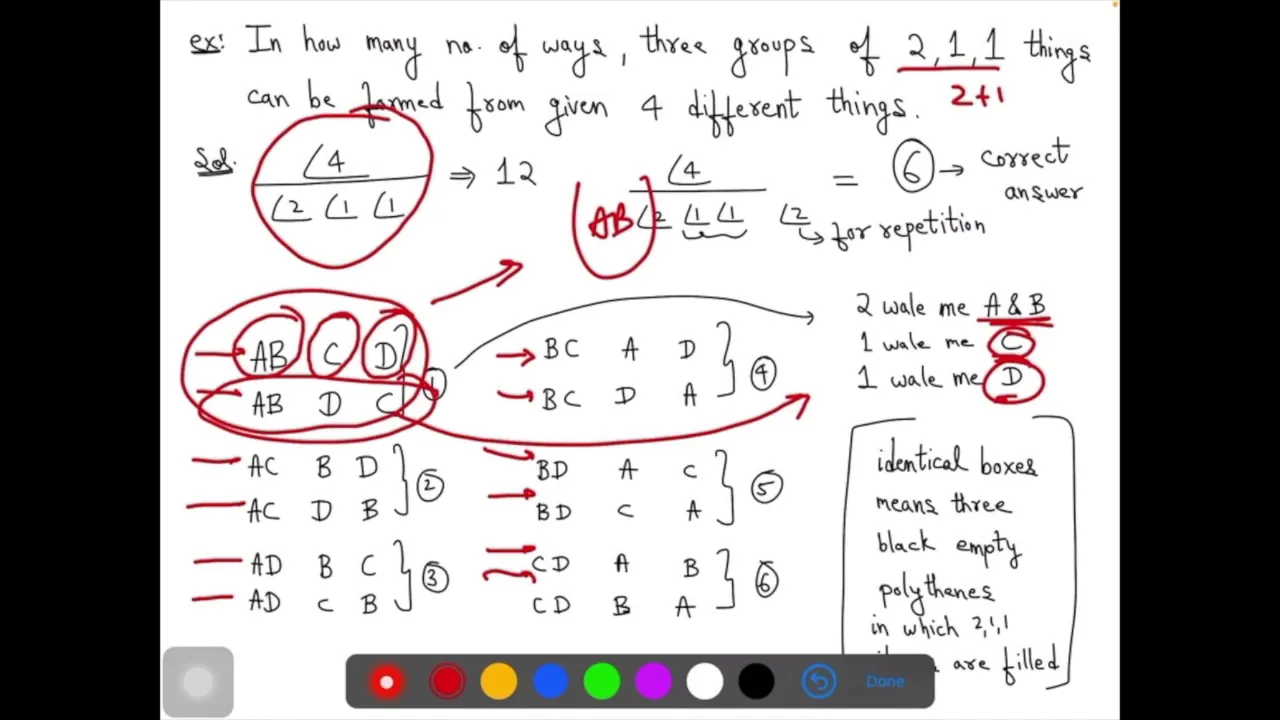 ex: In how many no. of ways, three groups of 2,1,1 things
2+1
can be formed from given 4 different things.
Sol. ∠4 / ∠2 ∠1 ∠1 ⇒ 12 ∠4 / ∠2 ∠1 ∠1 ∠2 = 6 → correct answer
AB
for repetition
AB C D
AB D C
1
AC B D
AC D B
2
AD B C
AD C B
3
BC A D
BC D A
4
BD A C
BD C A
5
CD A B
CD B A
6
2 wale me A & B
1 wale me C
1 wale me D
identical boxes
means three
black empty
polythenes
in which 2,1,1
are filled
Done